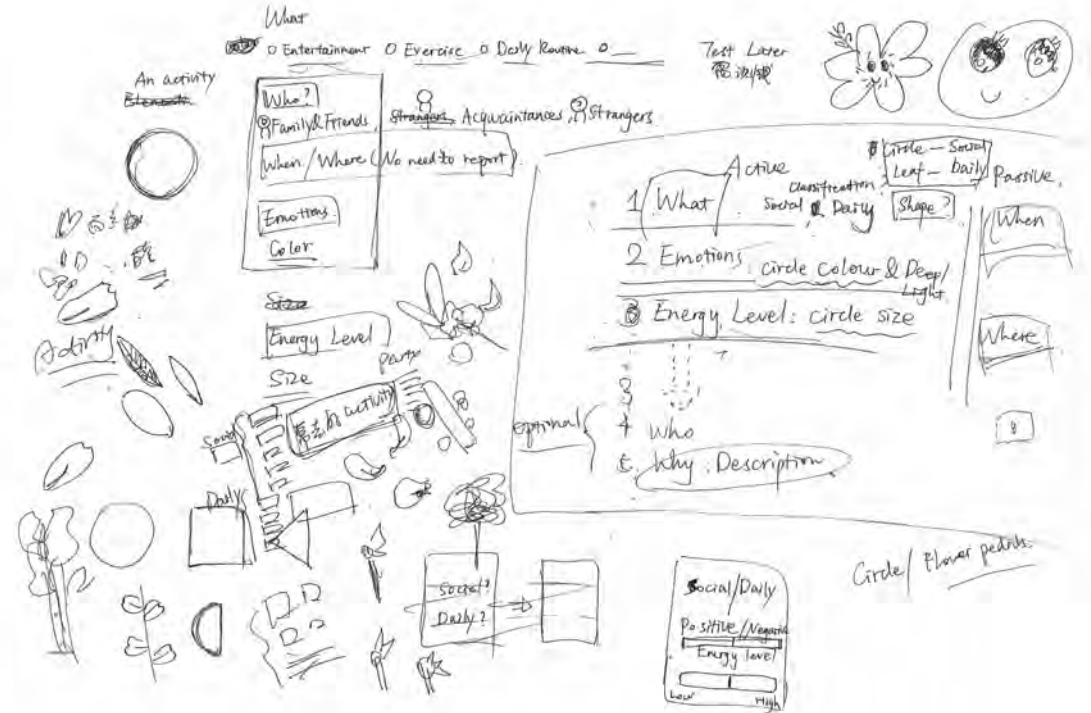 What
O Entertainment O Exercise O Daily Routine O
Test Later
An activity
Who?
Family & Friends, Strangers, Acquaintances, Strangers
When / Where (No need to report)
Emotions
Color
Size
Energy Level
Size
party
activity
Social
Daily
Social?
Daily?
Active
Circle — Social
Leaf — Daily
Passive
1 What
Classification
Social & Daily
Shape?
When
2 Emotions circle colour & Deep/
Light
3 Energy Level: circle size
Where
3
optional
4 Who
5. Why. Description
Circle / Flower petals.
Social/Daily
Positive/Negative
Energy level
Low High